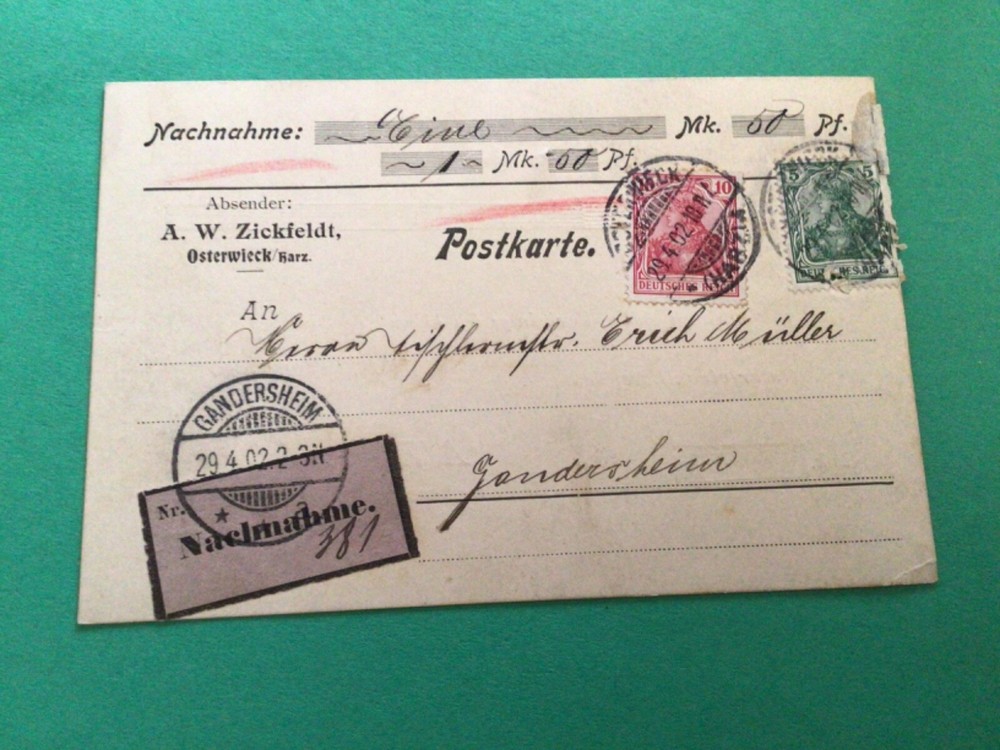 Nachnahme: Eine Mk. 50 Pf.
1 Mk. 50 Pf.
Absender:
A. W. Zickfeldt,
Osterwieck/Harz.
Postkarte.
10
DEUTSCHES REICH
29.4.02
(HARZ)
5 5
An
Herrn Tischlermstr. Erich Müller
Gandersheim
GANDERSHEIM
29.4.02.2-3N
Nr.
Nachnahme.
381